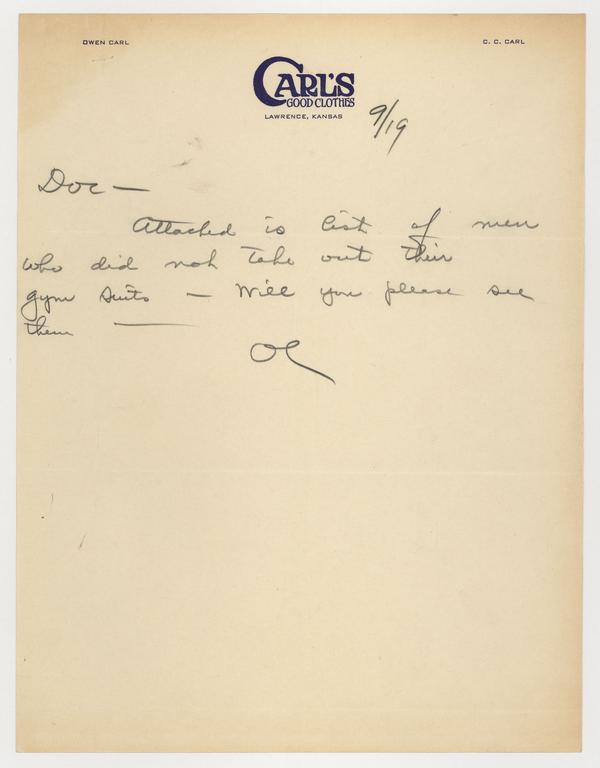 OWEN CARL
C. C. CARL
CARL'S
GOOD CLOTHES
LAWRENCE, KANSAS
9/19
Doc —
Attached is list of men
who did not take out their
gym suits — Will you please see
them —
OC